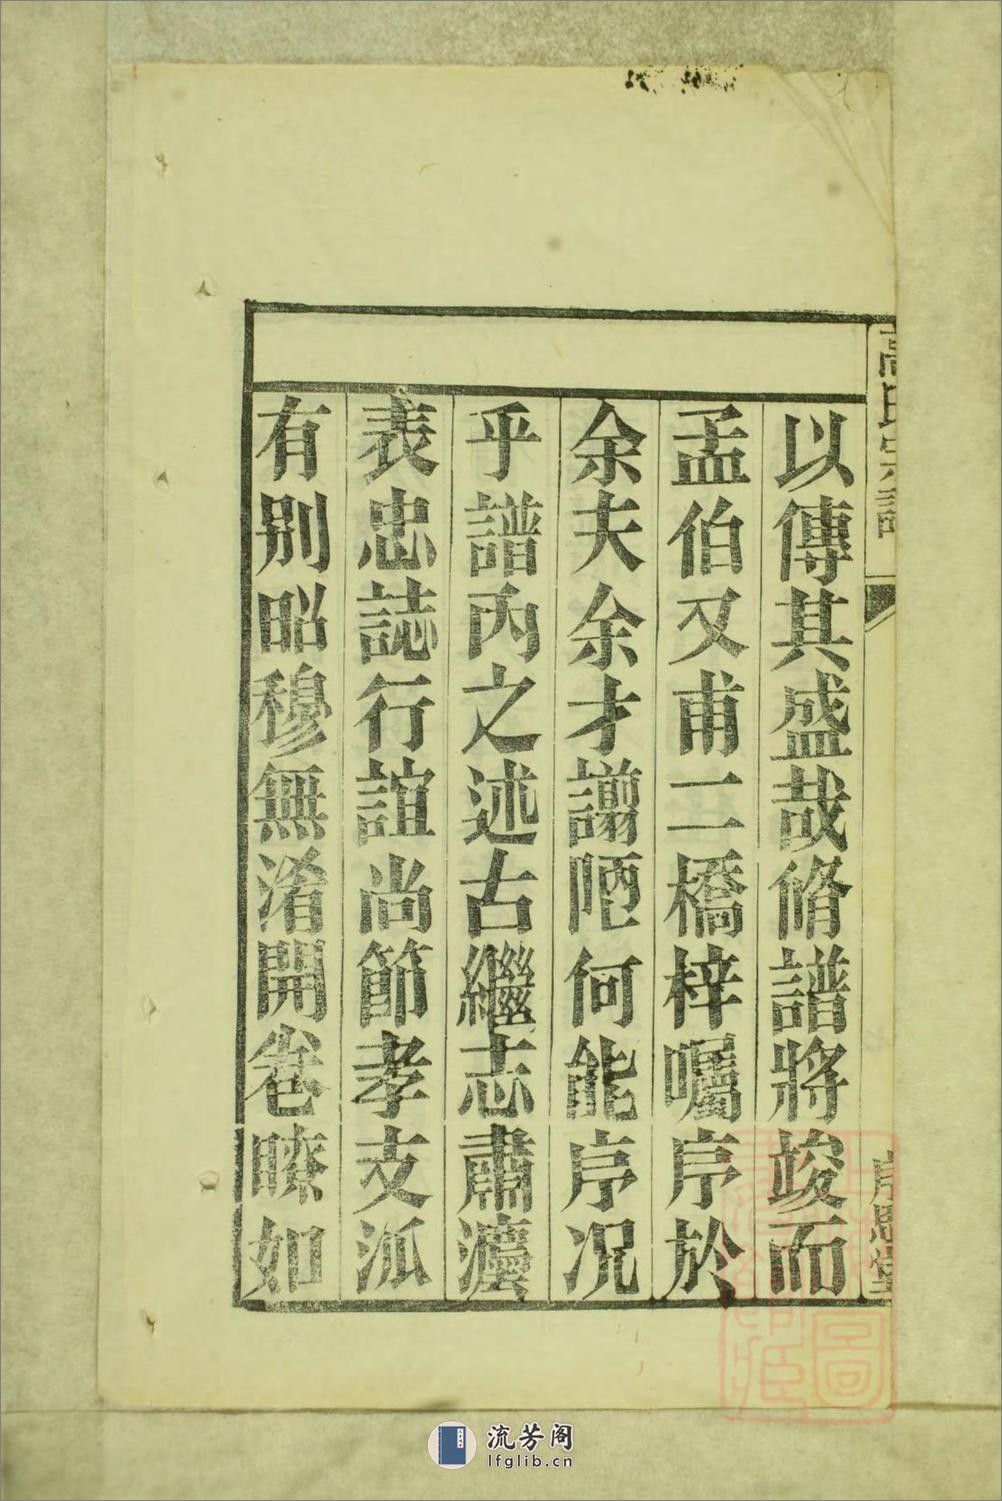 以傳其盛哉脩譜將竣而
孟伯又甫二橋梓囑序於
余夫余才謭陋何能序况
乎譜丙之述古繼志肅瀆
表忠誌行誼尚節孝支派
有别昭穆無淆開卷暸如
高氏宗譜
序
堂
流芳阁
lfglib.cn